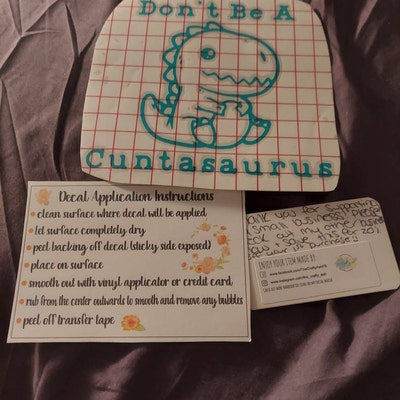 Don't Be A
Cuntasaurus
Decal Application Instructions
• clean surface where decal will be applied
• let surface completely dry
• peel backing off decal (sticky side exposed)
• place on surface
• smooth out with vinyl applicator or credit card
• rub from the center outwards to smooth and remove any bubbles
• peel off transfer tape
you for supporting
small business! Please
my other
save
purchase
ENJOY YOUR ITEM MADE BY: